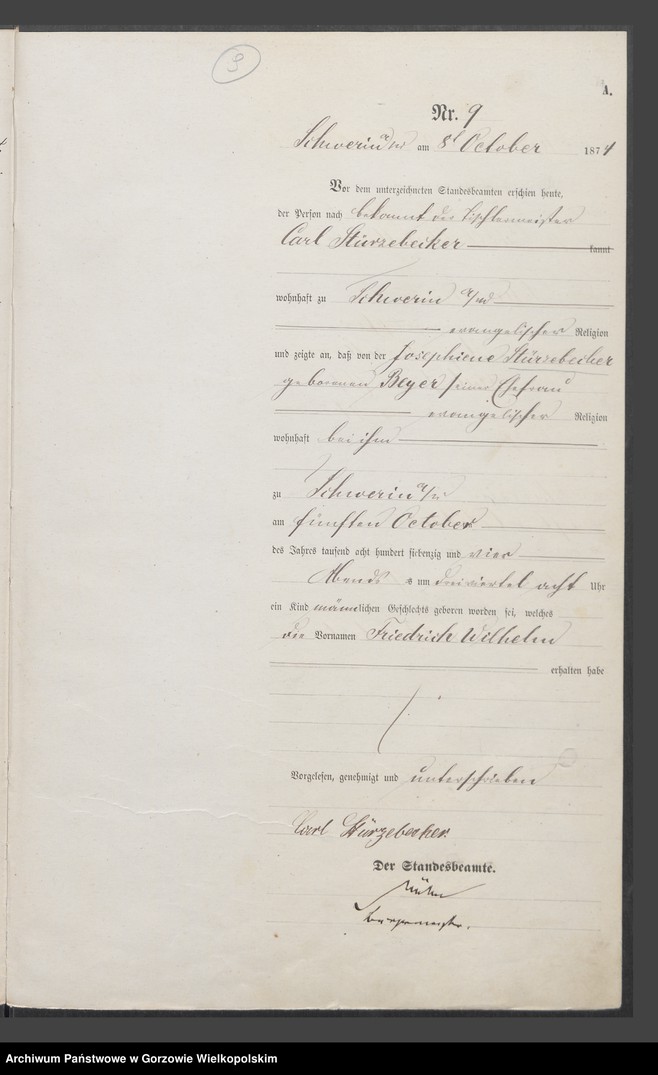 9
A.
Nr. 9
Schwerin a/W am 8t October 1874
Vor dem unterzeichneten Standesbeamten erschien heute,
der Person nach bekannt der Tischlermeister
Carl Stürzebecker kannt
wohnhaft zu Schwerin a/W
evangelischer Religion
und zeigte an, daß von der Josephiene Stürzebecher
geborenen Beyer seiner Ehefrau
evangelischer Religion
wohnhaft bei ihm
zu Schwerin a/W
am fünften October
des Jahres tausend acht hundert siebenzig und vier
Abends um dreiviertel acht Uhr
ein Kind männlichen Geschlechts geboren worden sei, welches
die Vornamen Friedrich Wilhelm
erhalten habe
Vorgelesen, genehmigt und unterschrieben
Carl Stürzebecher
Der Standesbeamte.
Bürgermeister.
Archiwum Państwowe w Gorzowie Wielkopolskim